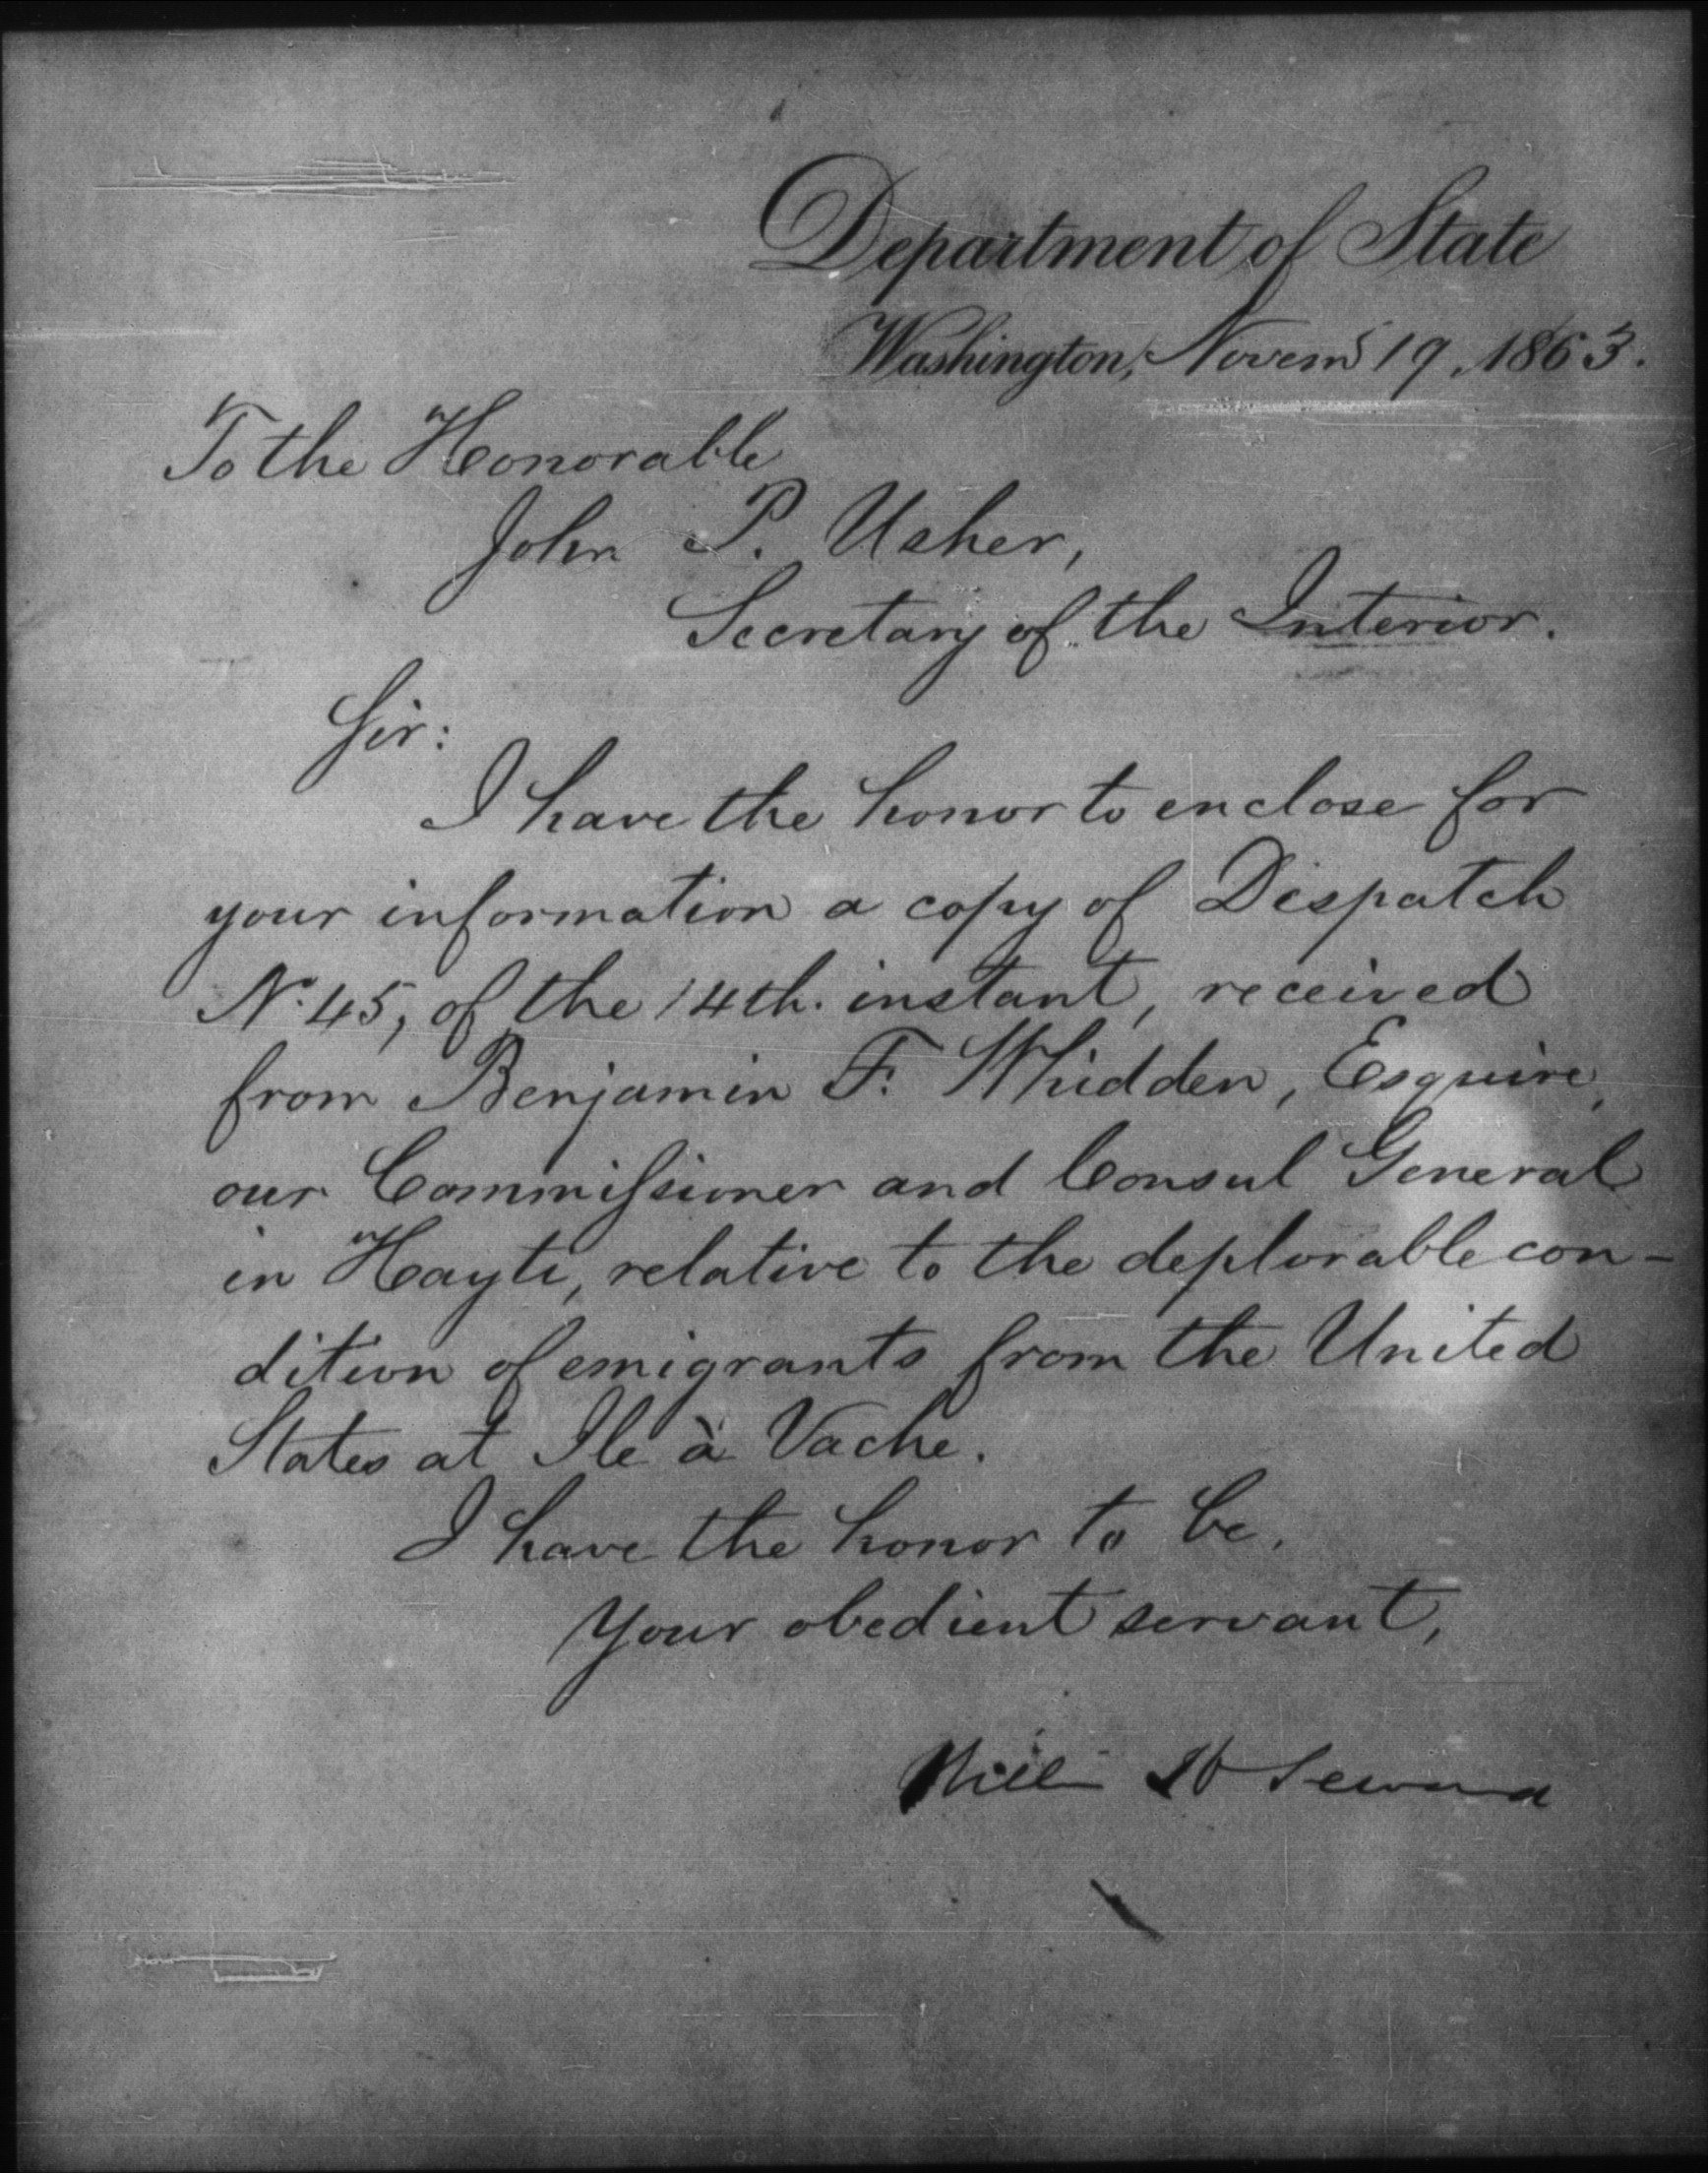 Department of State
Washington, Novem^r 19, 1863.
To the Honorable
John P. Usher,
Secretary of the Interior.
Sir:
I have the honor to enclose for
your information a copy of Dispatch
N. 45, of the 14th. instant, received
from Benjamin F. Whidden, Esquire,
our Commissioner and Consul General
in Hayti, relative to the deplorable con-
dition of emigrants from the United
States at Ile à Vache.
I have the honor to be,
Your obedient servant,
William H Seward